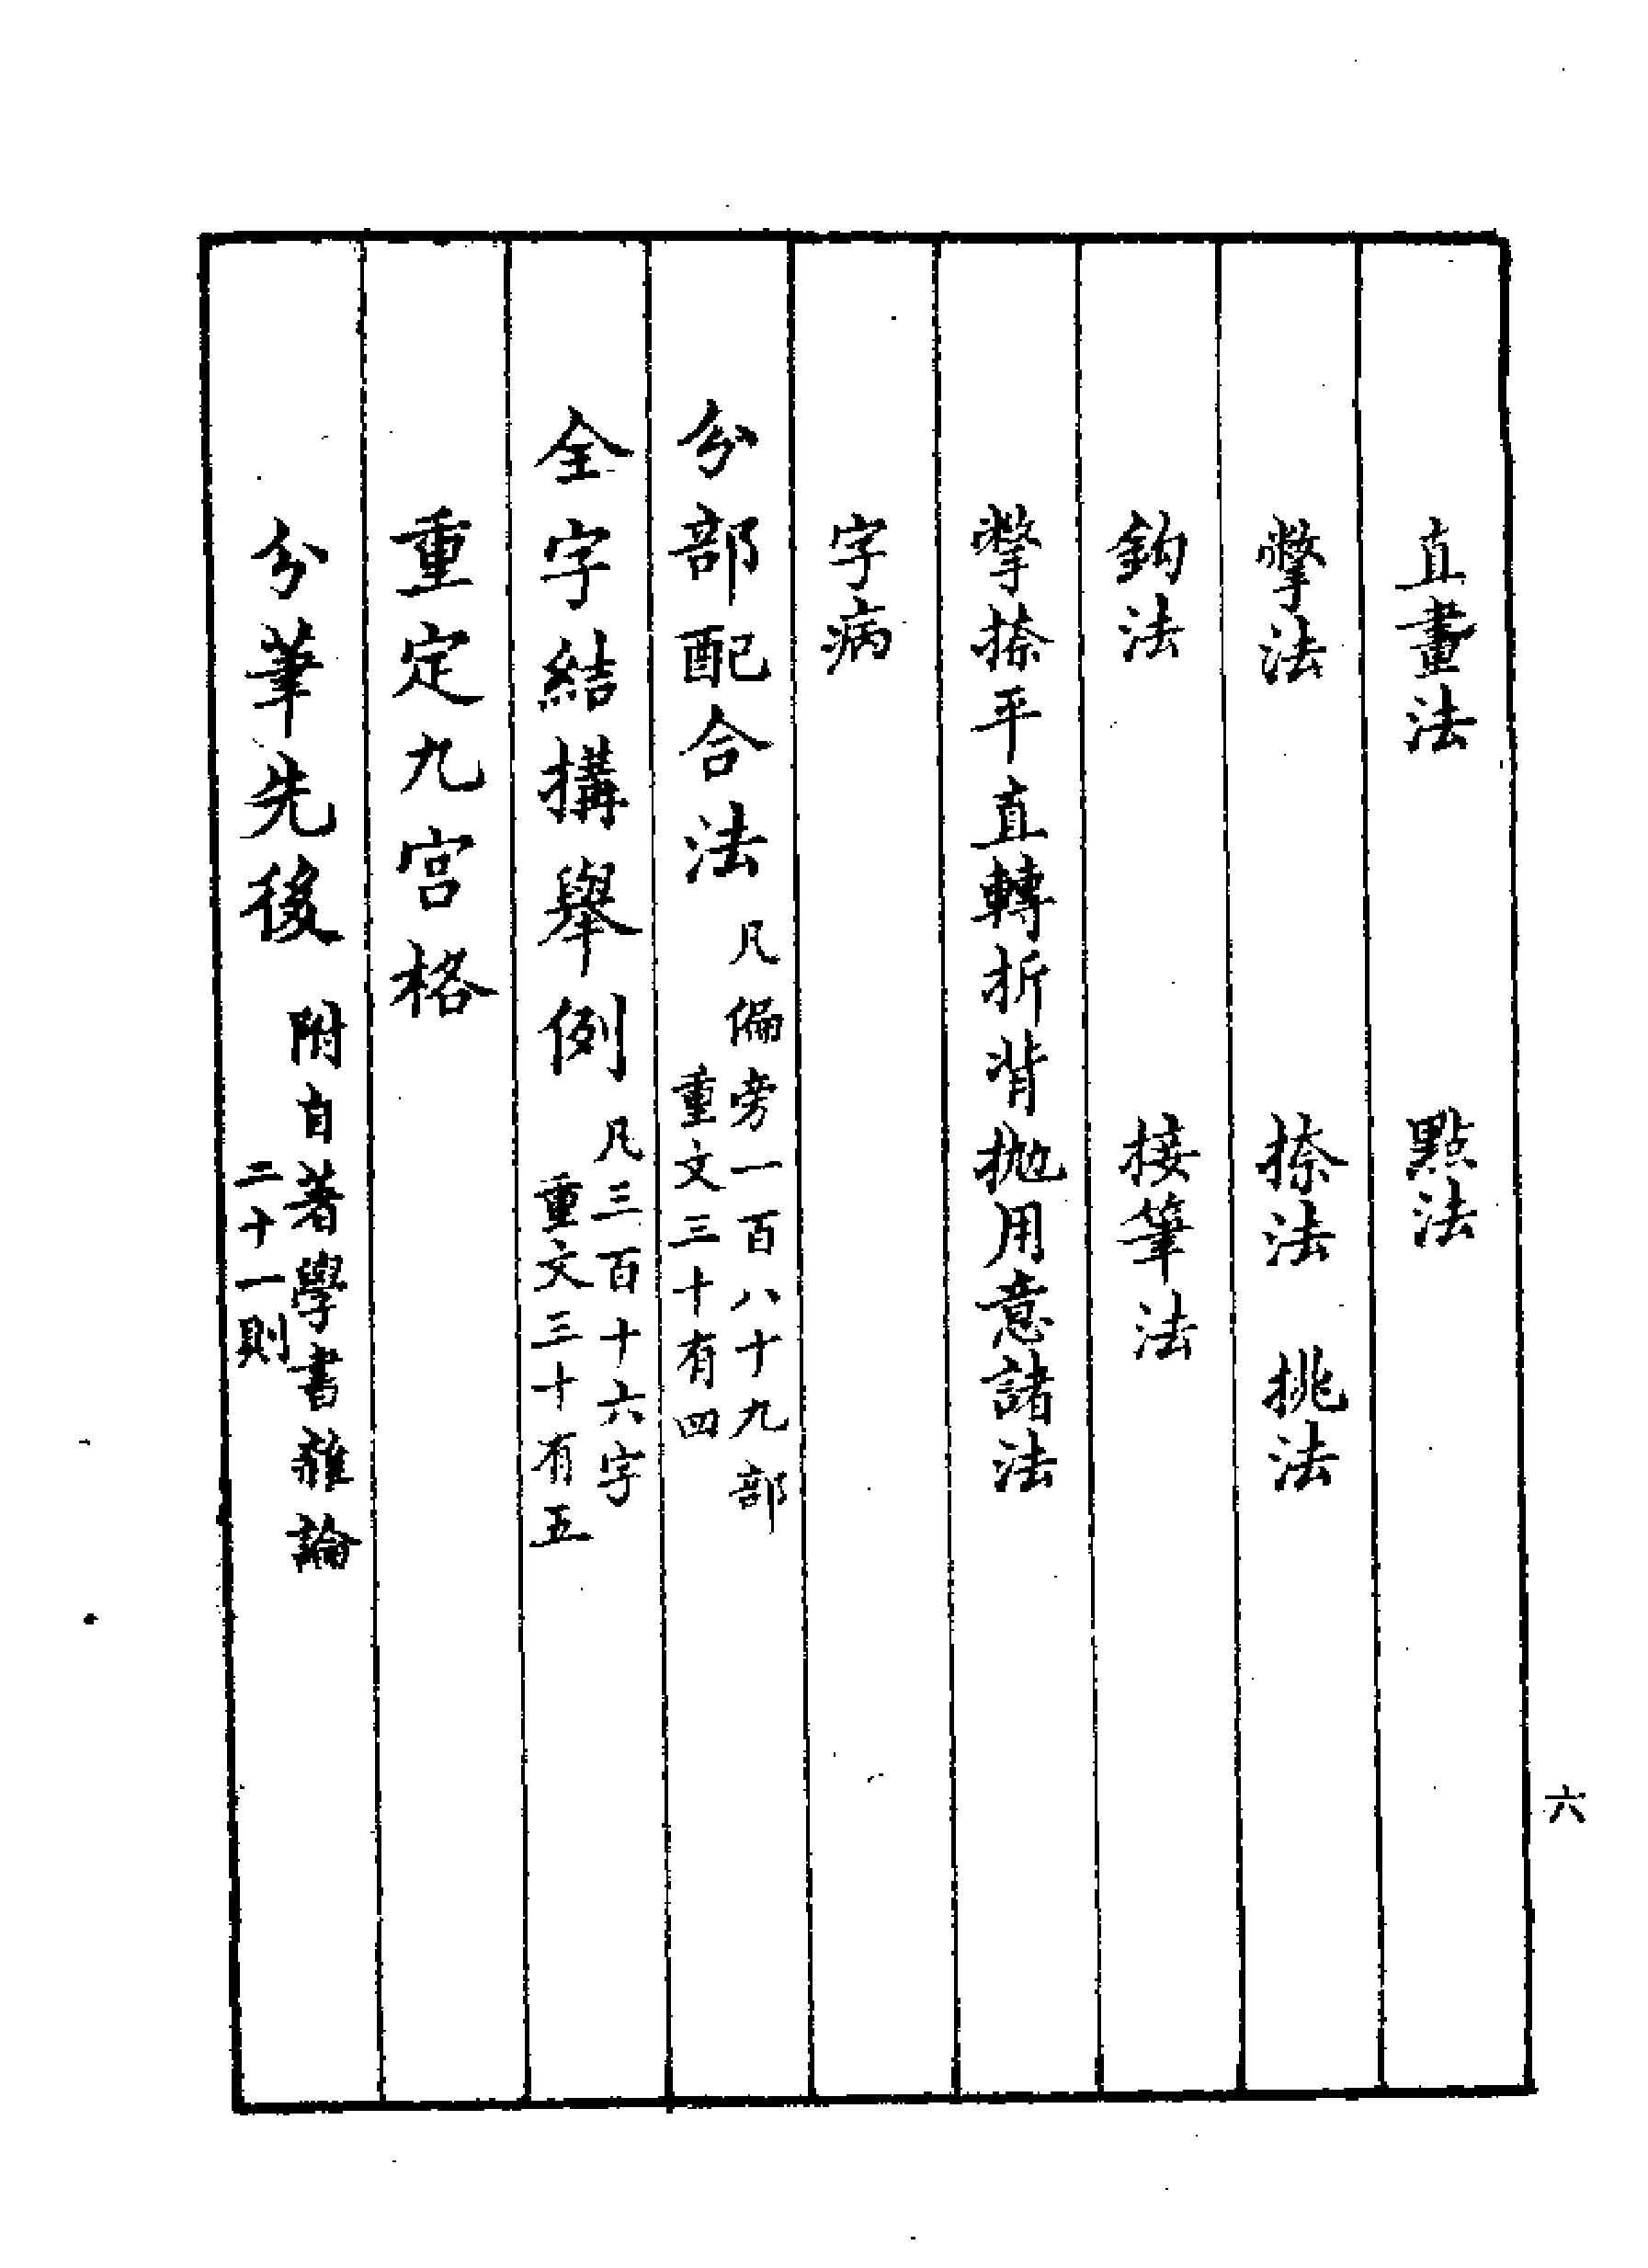 直畫法　點法
撆法　捺法　挑法
鈎法　接筆法
撆捺平直轉折背拋用意諸法
字病
分部配合法　凡偏旁一百八十九部
重文三十有四
全字結搆舉例　凡三百十六字
重文三十有五
重定九宮格
分筆先後　附自著學書雜論
二十一則
六